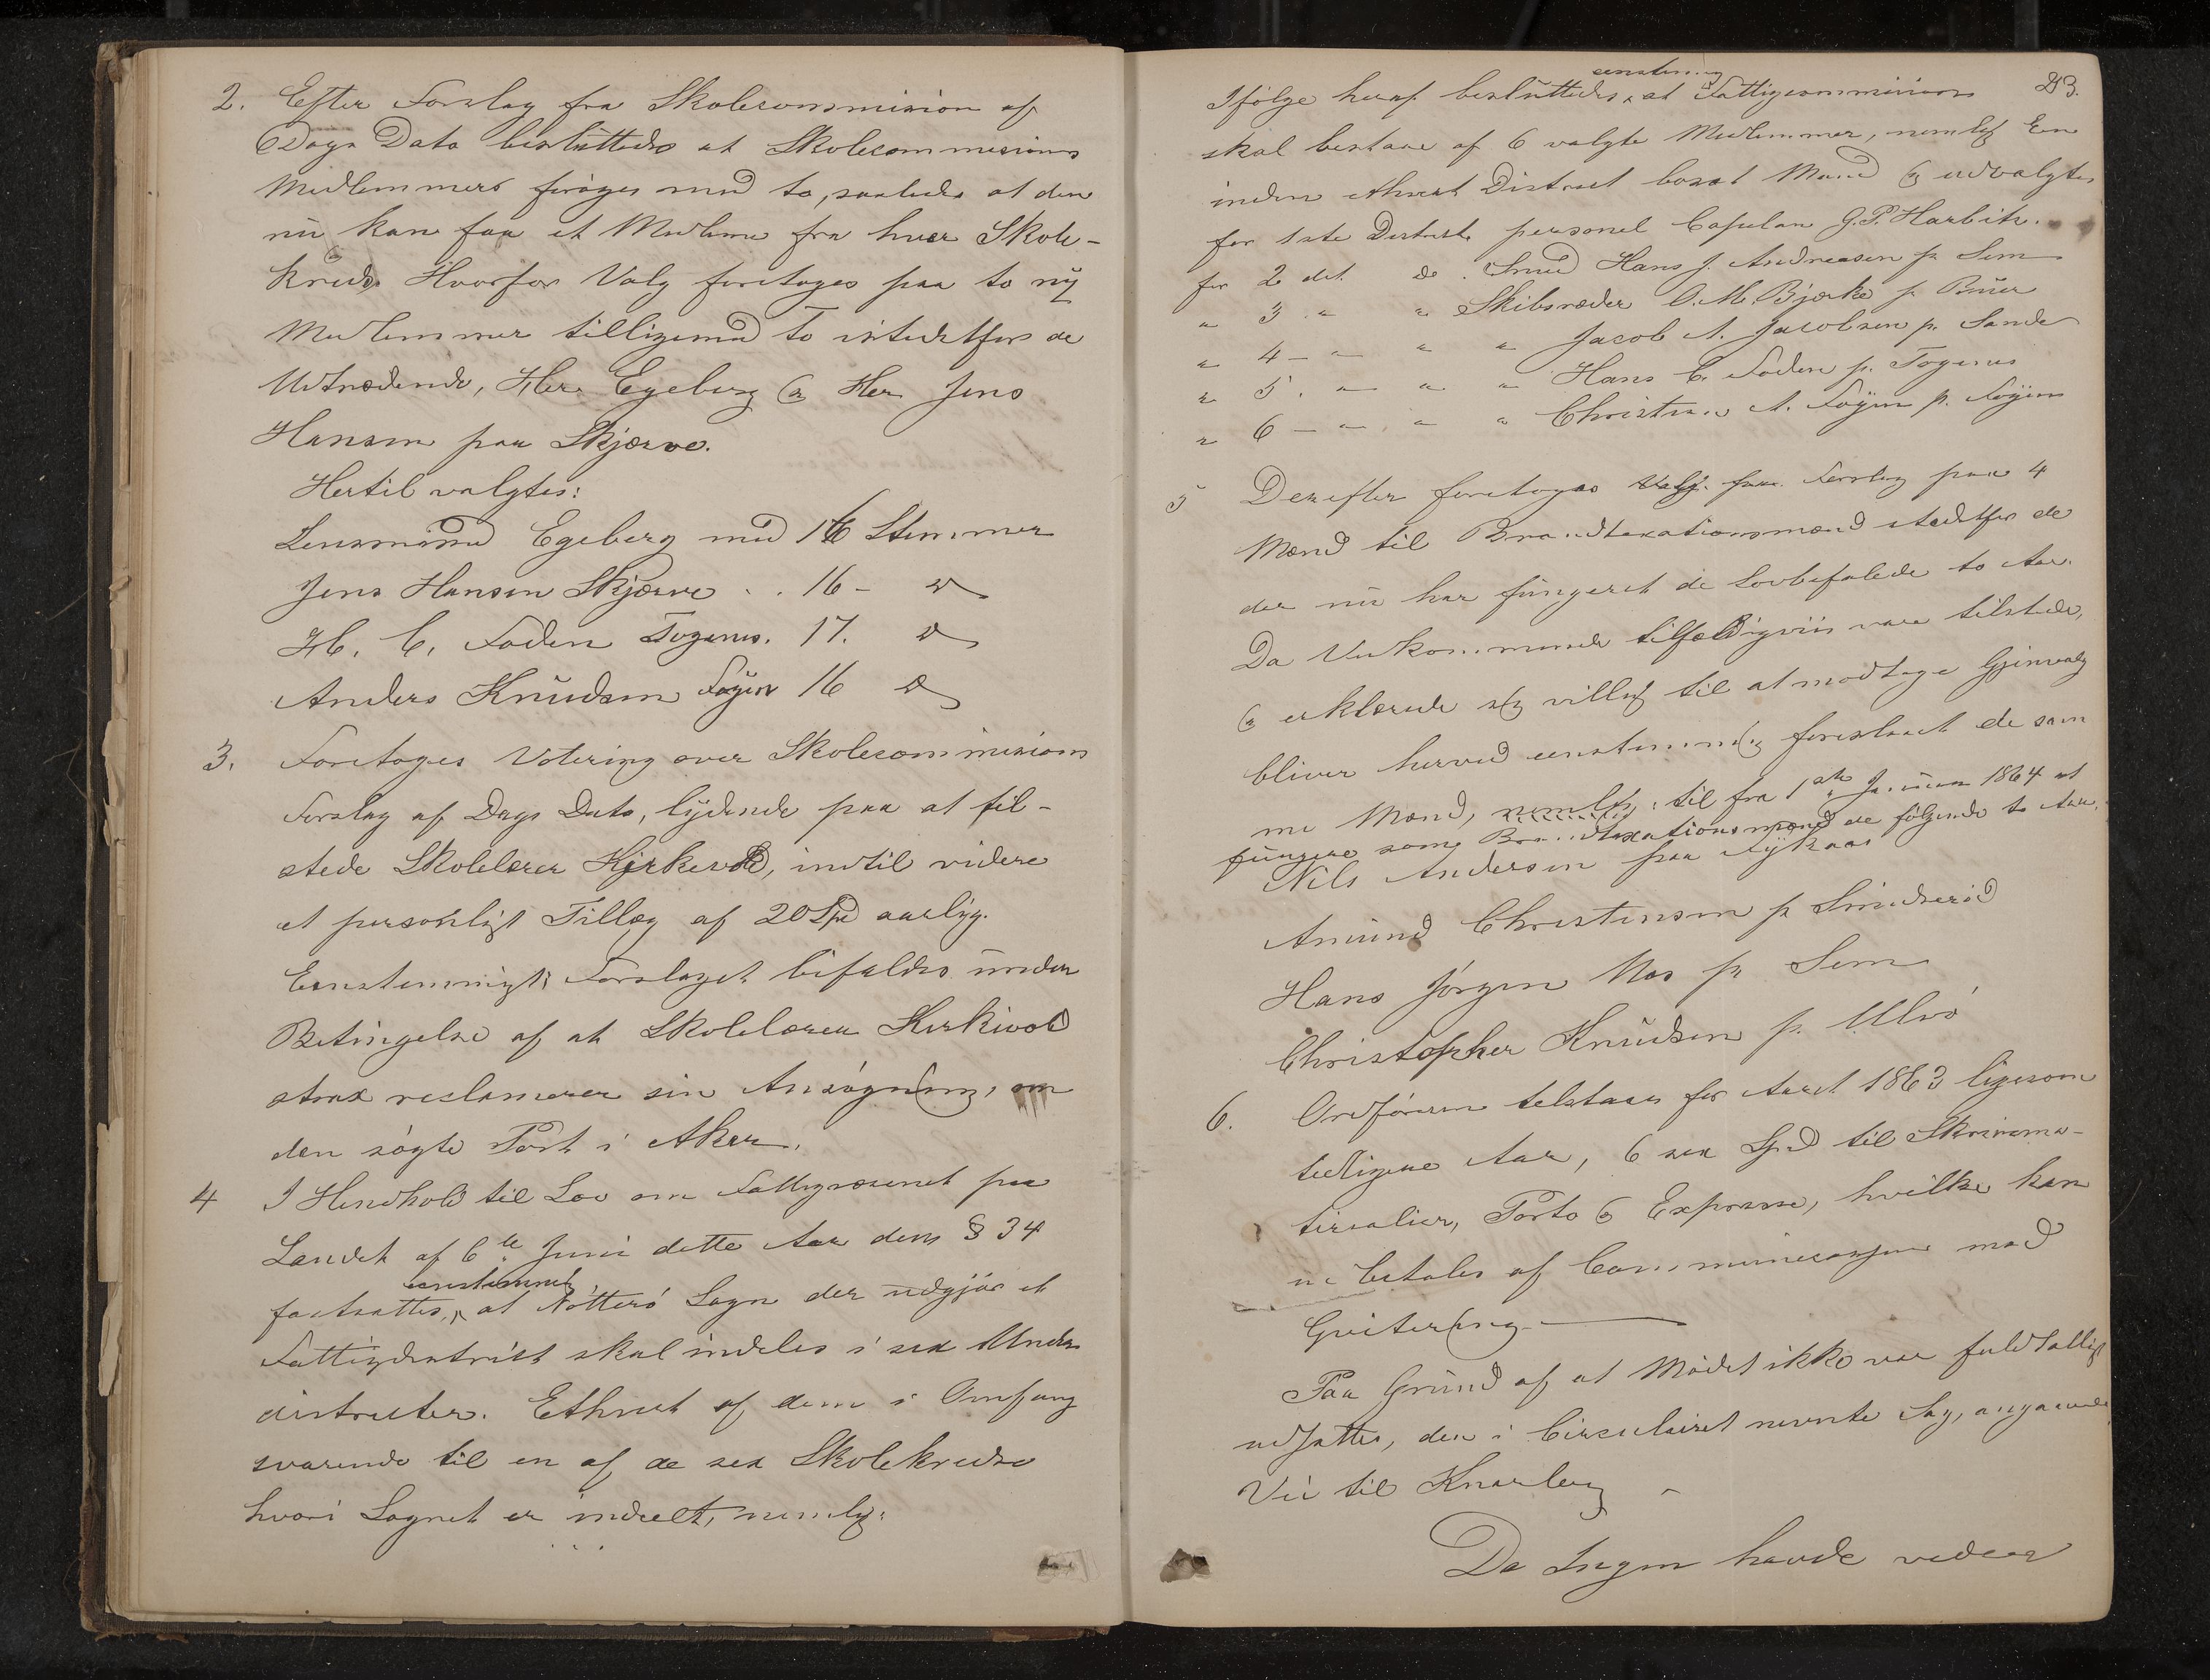 2. Efter Forslag fra Skolecommission af
Dags Dato besluttedes at Skolecommissions
Medlemmers forøges med to, saaledes at den
nu kan faa et Medlem fra hver Skole-
kreds. Hvorfor Valg foretoges paa to ny
Medlemmer tilligemed To istedetfor de
Udtrædende, Her Egeberg og Her Jens
Hansen paa Skjærve.
Hertil valgtes:
Lensmand Egeberg med 16 Stemmer
Jens Hansen Skjærve . . 16 - do
H. C. Foden Togenes. 17. do
Anders Knudsen Føyen 16 do
3. Foretoges Votering over Skolecommissions
Forslag af Dags Dato, lydende paa at til-
stede Skolelærer Kirkevold, indtil videre
et personligt Tillæg af 20 Spd aarlig.
Eenstemmigt Forslaget bifaldes under
Betingelse af at Skolelærer Kirkevold
strax reclamerer sin Ansøgning, om
den søgte Post i Aker.
4 I Henhold til Lov om Fattigvæsenet paa
Landet af 6te Juni dette Aar dens § 34
eenstemmigt
fastsattes, at Nøtterø Sogn der udgjør et
Fattigdistrikt skal indeles i sex Under
districter. Ethvert af dem i Omfang
svarende til en af de sex Skolekredse
hvori Sognet er indeelt, nemlig:
23.
eenstemmig
Ifølge heraf besluttedes, at Fattigcommission
skal bestaae af 6 valgte Medlemmer, nemlig En
inden ethvert District bosat Mand og udvalgtes
for 1ste District personel Capelan G. P. Harbitz.
for 2 det do. Smed Hans J. Andreasen p. Sem
" 3 " " Skibsreder O. M. Bjerke p. Buer
" 4 - " " " Jacob A. Jacobsen p. Sande
" 5. " " " Hans C. Foden p. Togenes
" 6 - " " " Christian A. Føyen p. Føyen
5 Derefter foretoges Valg paa Forslag paa 4
Mænd til Brandtaxationsmænd istedetfor de
der nu har fungeret de Lovbefalede to Aar.
Da Vedkommende tilfældigviis vare tilstede,
og erklærede sig villig til at modtage Gjenvalg
bliver herved eenstemmig foreslaaet de sam
me Mænd, nemlig: til fra 1ste Januar 1864 at
fungere som Brandtaxationsmænd de følgende to Aar.
Nils Andersen paa
Amund Christensen p Smidsrød
Hans Jørgen Moe p Sem
Christopher Knudsen p. Ulvø
6. Ordføreren tilstaaes for Aaret 1863 ligesom
tidligere Aar, 6 sex Spd til Skrivema-
terialier, Porto og Expresse, hvilke kan
udbetales af Communecassen mod
Qvitering
Paa Grund af at Mødet ikke var fuldtalligt
udsattes, den i Circulairet nevnte Sag, angaaende
Vei til Knarberg -
Da Ingen havde videre